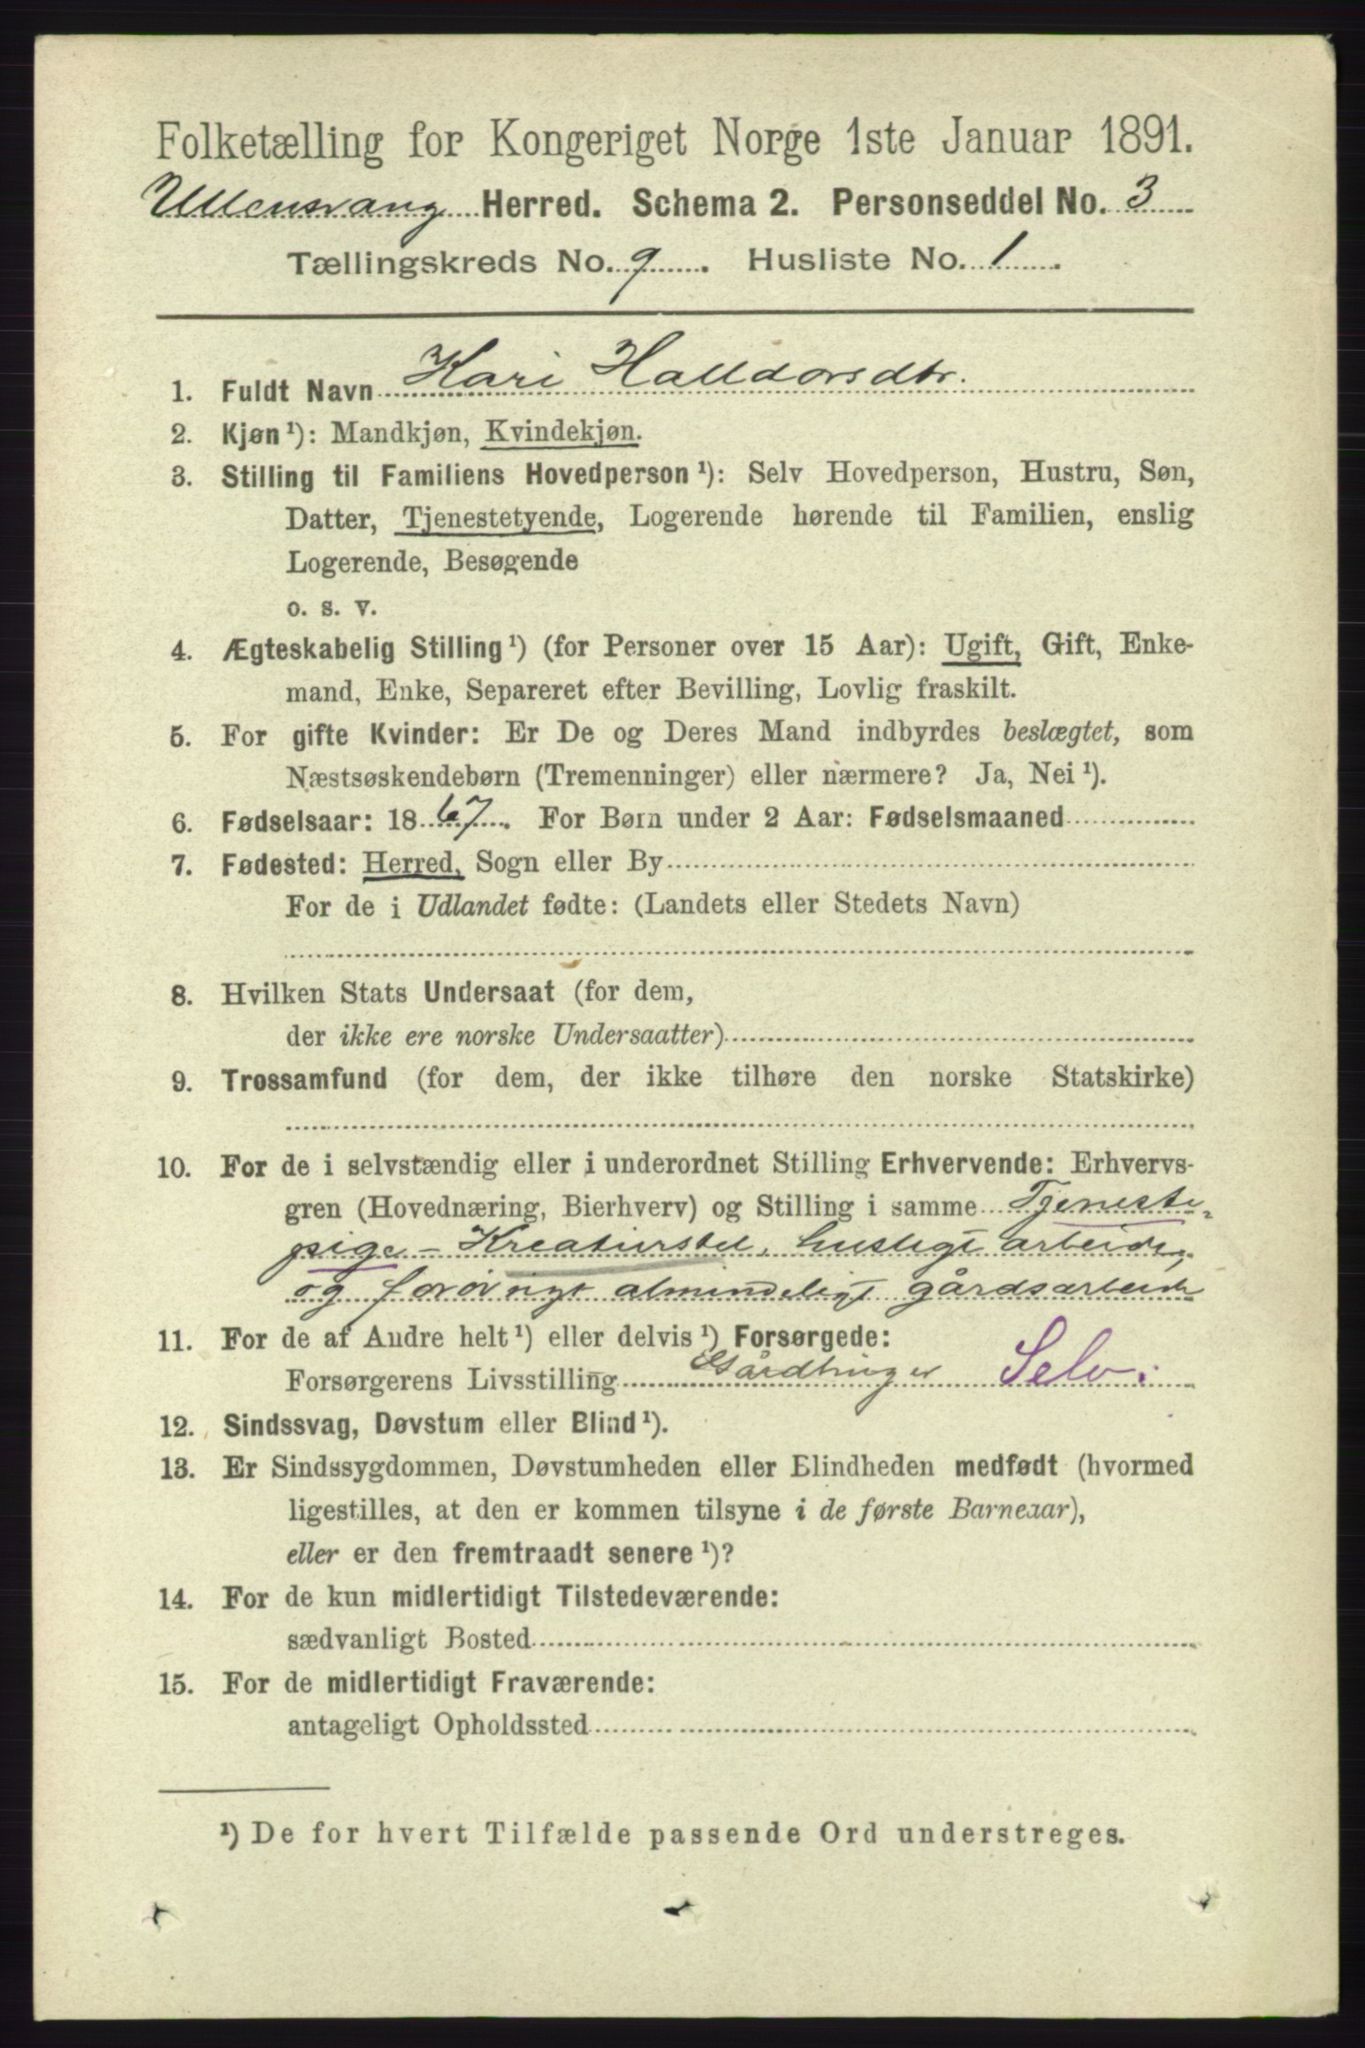 Folketælling for Kongeriget Norge 1ste Januar 1891.
Ullensvang Herred. Schema 2. Personseddel No. 3
Tællingskreds No. 9. Husliste No. 1.
1. Fuldt Navn Kari Halldorsdtr.
2. Kjøn¹): Mandkjøn, Kvindekjøn.
3. Stilling til Familiens Hovedperson¹): Selv Hovedperson, Hustru, Søn,
Datter, Tjenestetyende, Logerende hørende til Familien, enslig
Logerende, Besøgende
o. s. v.
4. Ægteskabelig Stilling¹) (for Personer over 15 Aar): Ugift, Gift, Enke-
mand, Enke, Separeret efter Bevilling, Lovlig fraskilt.
5. For gifte Kvinder: Er De og Deres Mand indbyrdes beslægtet, som
Næstsøskendebørn (Tremenninger) eller nærmere? Ja, Nei¹).
6. Fødselsaar: 1867. For Børn under 2 Aar: Fødselsmaaned
7. Fødested: Herred, Sogn eller By
For de i Udlandet fødte: (Landets eller Stedets Navn)
8. Hvilken Stats Undersaat (for dem,
der ikke ere norske Undersaatter)
9. Trossamfund (for dem, der ikke tilhøre den norske Statskirke)
10. For de i selvstændig eller i underordnet Stilling Erhvervende: Erhvervs-
gren (Hovednæring, Bierhverv) og Stilling i samme Tjeneste-
pige - Kreaturstel, husligt arbeide,
og forøvrigt almindeligt gårdsarbeide
11. For de af Andre helt¹) eller delvis¹) Forsørgede:
Forsørgerens Livsstilling Gårdbruger Selv.
12. Sindssvag, Døvstum eller Blind¹).
13. Er Sindssygdommen, Døvstumheden eller Blindheden medfødt (hvormed
ligestilles, at den er kommen tilsyne i de første Barneaar),
eller er den fremtraadt senere¹)?
14. For de kun midlertidigt Tilstedeværende:
sædvanligt Bosted
15. For de midlertidigt Fraværende:
antageligt Opholdssted
¹) De for hvert Tilfælde passende Ord understreges.